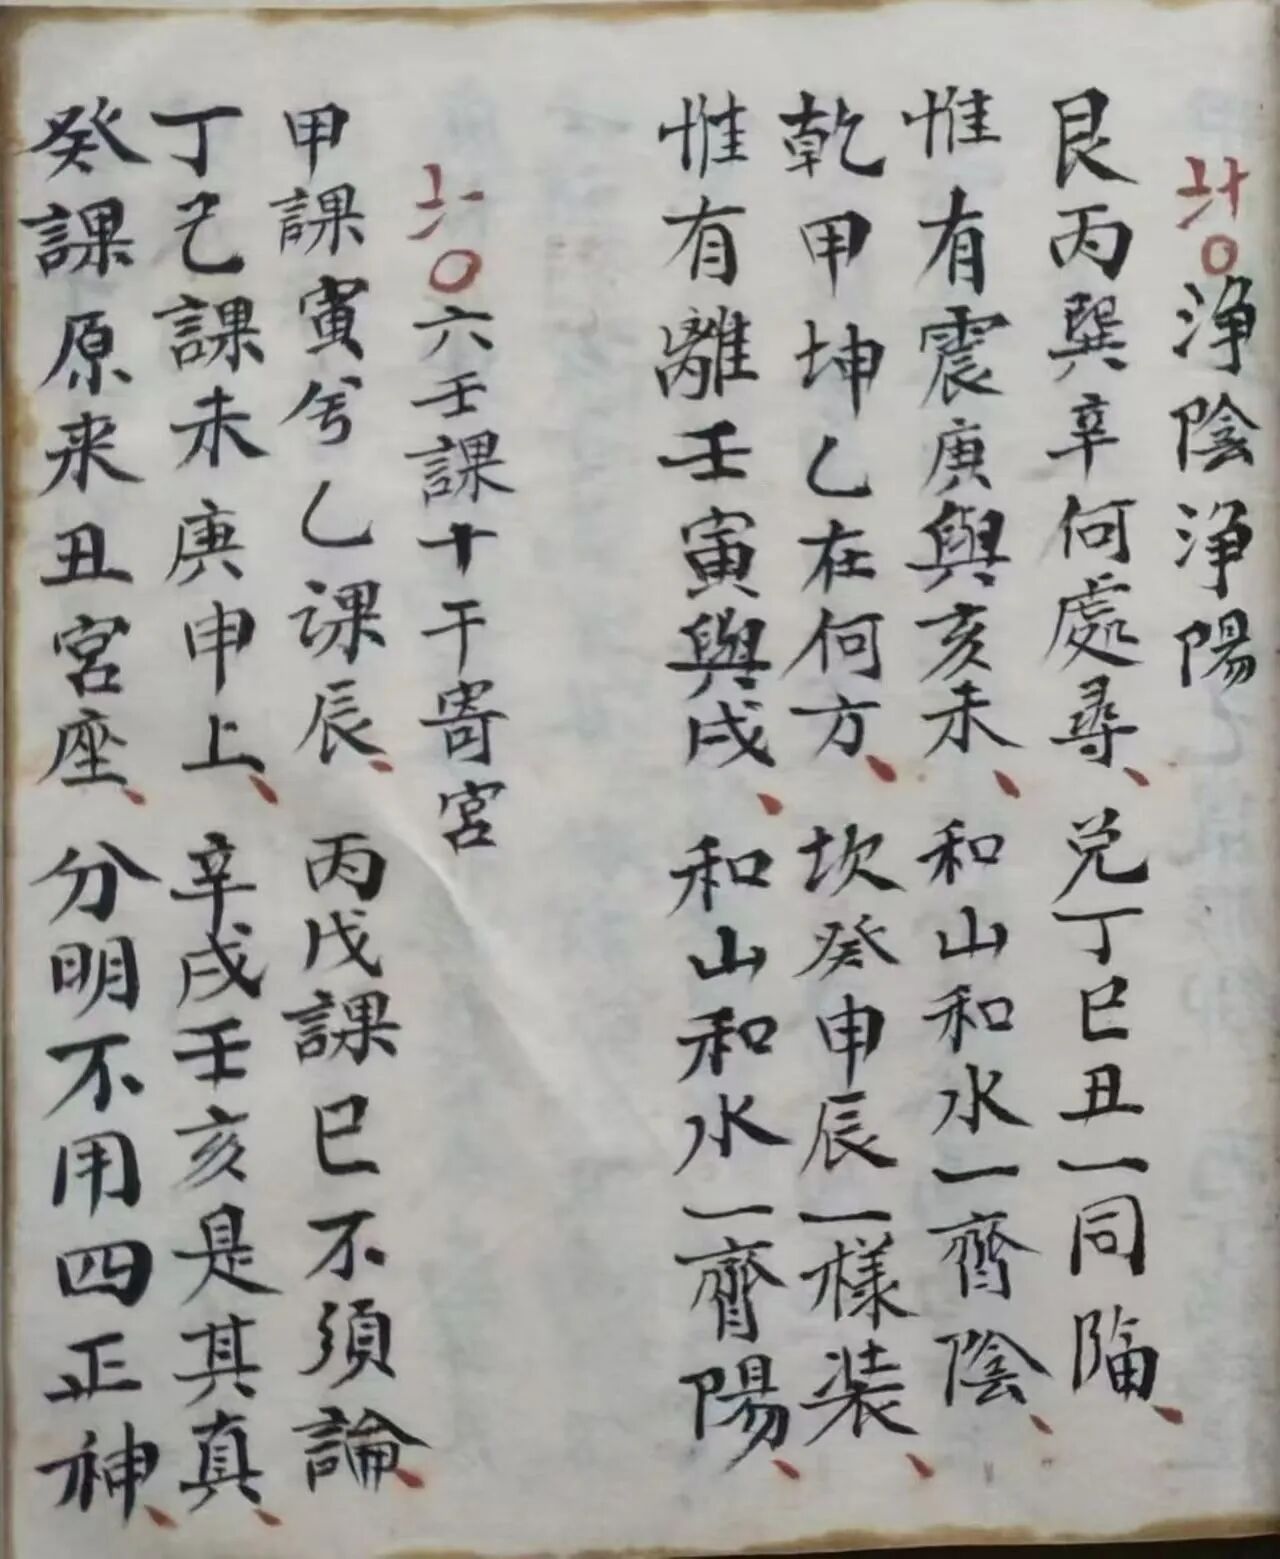 〇浄陰浄陽
艮丙巽辛何處尋、兑丁巳丑一同臨、
惟有震庚與亥未、和山和水一齊陰、
乾甲坤乙在何方、坎癸申辰一樣装、
惟有離壬寅與戌、和山和水一齊陽、
〇六壬課十干寄宮
甲課寅兮乙课辰、丙戊課巳不須論、
丁己課未庚申上、辛戌壬亥是其真、
癸課原来丑宮座、分明不用四正神、